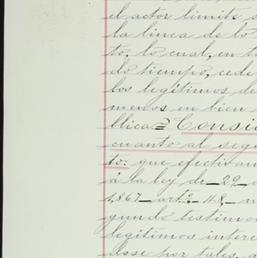 el actor limite s
la linea de lo
to, lo cual, en to
do tiempo, cede
los legítimos de
menos en bien
blica = Consid
cuanto al segu
to: que efectivam
á la ley de 29 
1,867 artº 48,
gundo testimo
legítimos inter
dose por tales, a